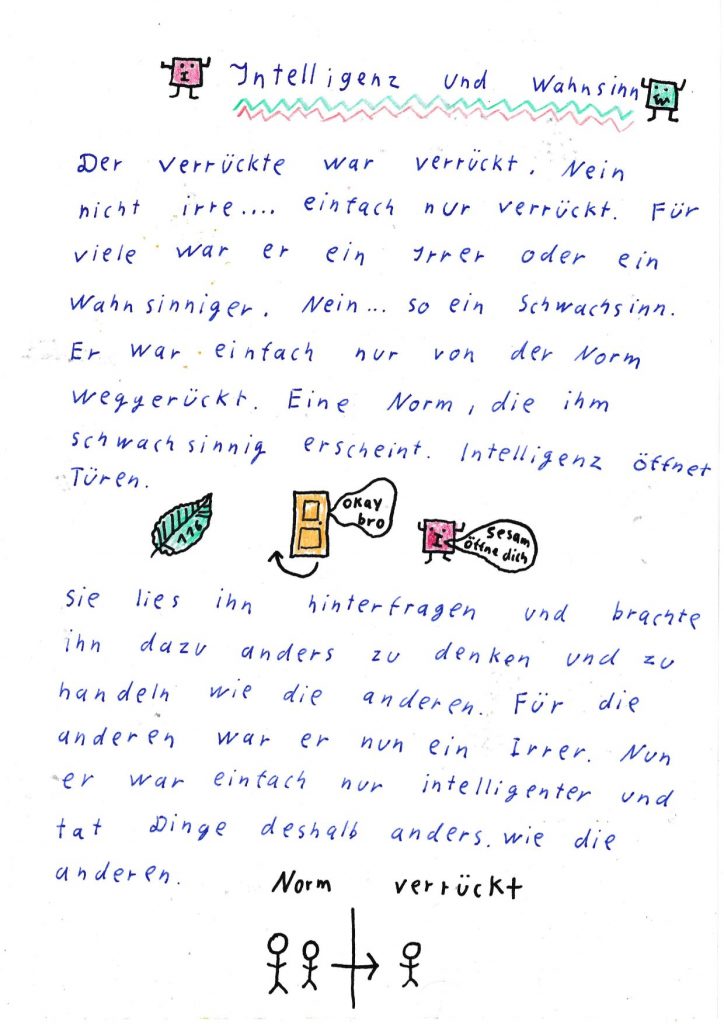 I Intelligenz und Wahnsinn W
Der verrückte war verrückt. Nein
nicht irre.... einfach nur verrückt. Für
viele war er ein Irrer oder ein
Wahnsinniger. Nein... so ein Schwachsinn.
Er war einfach nur von der Norm
weggerückt. Eine Norm, die ihm
schwachsinnig erscheint. Intelligenz öffnet
Türen.
116
okay
bro
I
Sesam
öffne dich
sie lies ihn hinterfragen und brachte
ihn dazu anders zu denken und zu
handeln wie die anderen. Für die
anderen war er nun ein Irrer. Nun
er war einfach nur intelligenter und
tat Dinge deshalb anders. wie die
anderen.
Norm verrückt